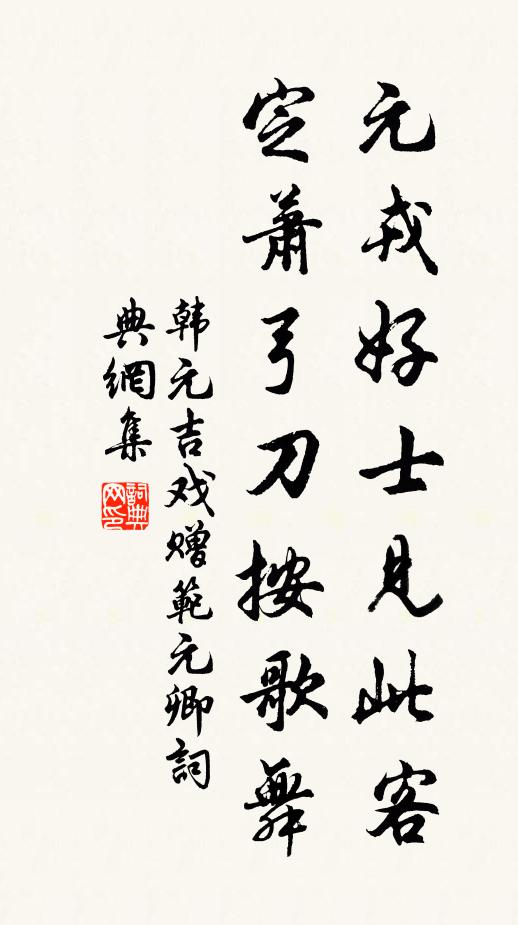 元戎好士見此客
定蕭弓刀按歌舞
韩元吉戏赠範元卿詞
典網集
詞典网印